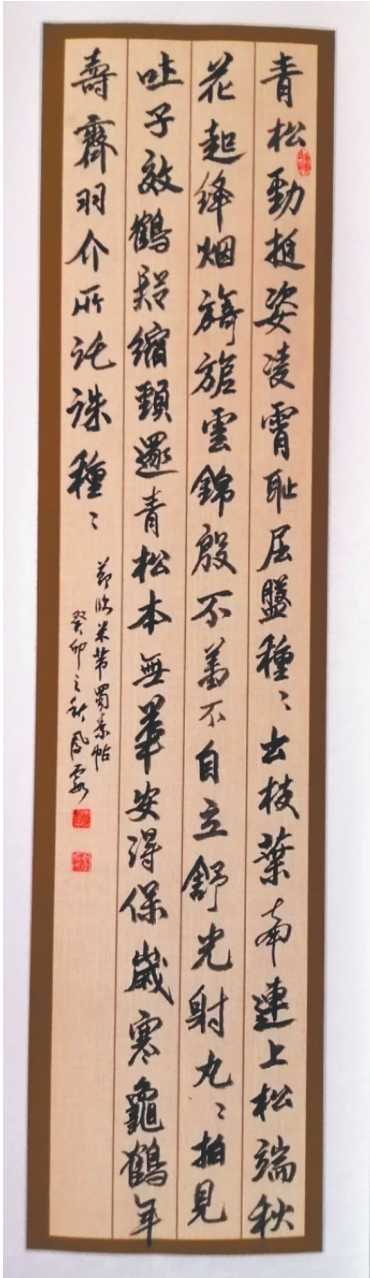 青松勁挺姿凌霄耻屈盤種〻出枝葉牽連上松端秋
花起絳烟旖旎雲錦殷不羞不自立舒光射丸〻拍見
吐子效鶴疑縮頸還青松本無華安得保歲寒龜鶴年
壽齊羽介所託誅種〻
節臨米芾蜀素帖
癸卯之秋